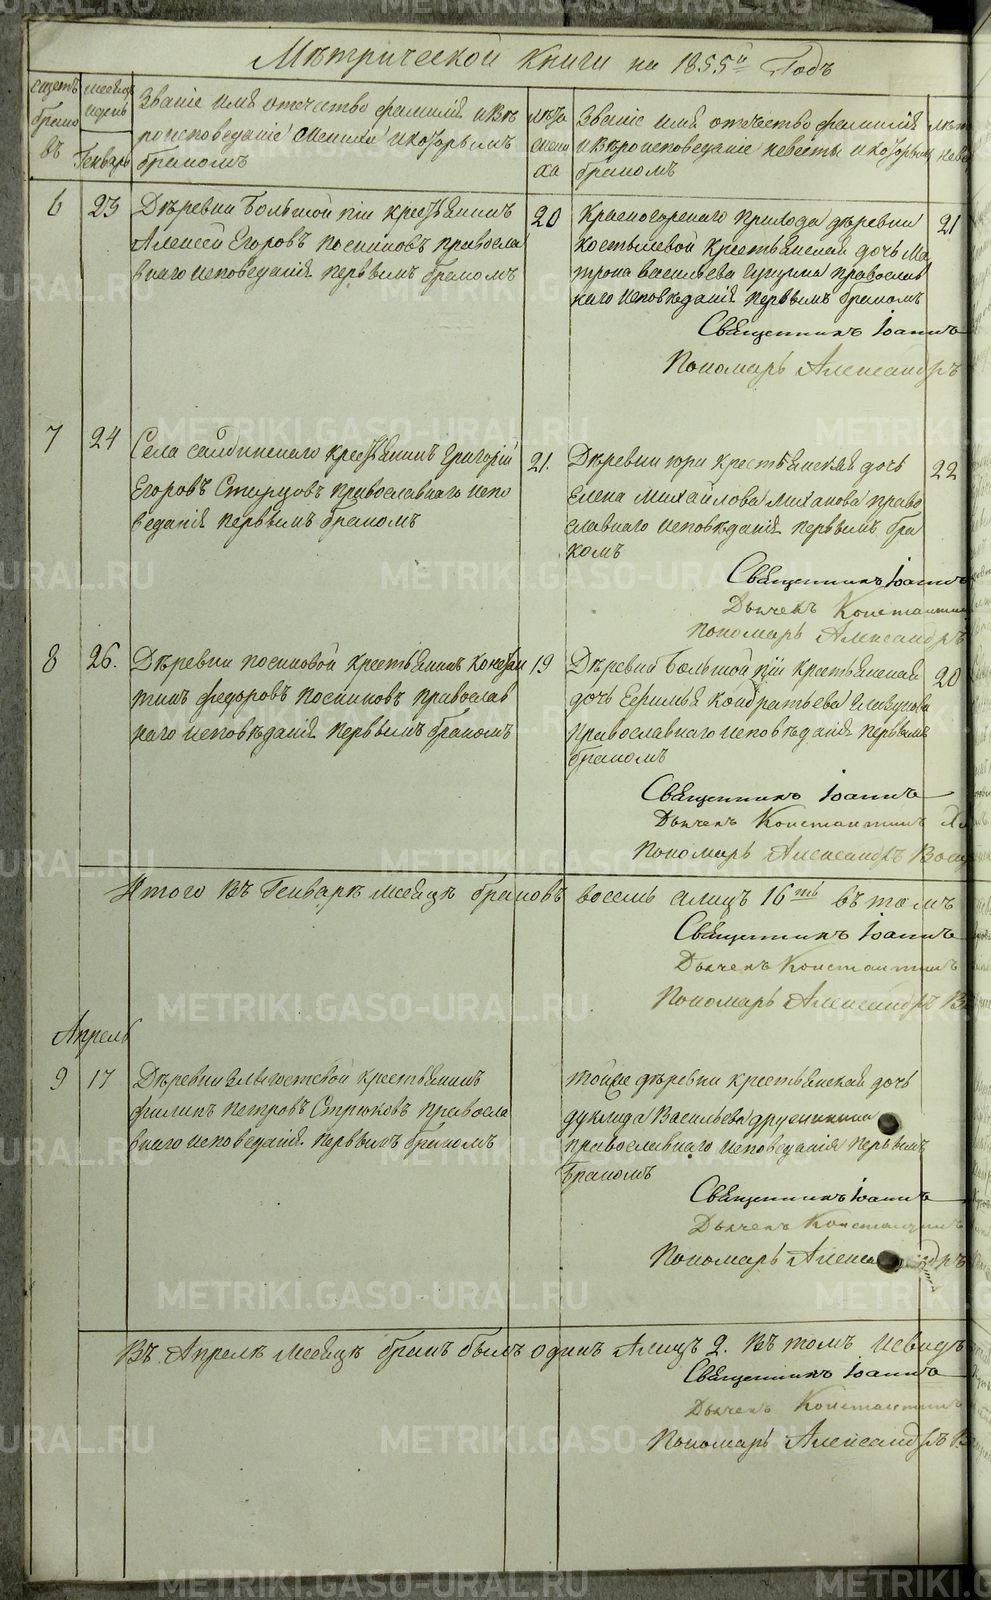 Мѣтрической книги на 1855й Годъ
Счетъ
брако
въ
месяцъ
и день
Генварь
Званіе имя отечество фамилія и Вѣ
роисповеданіе жениха и которымъ
бракомъ
лѣта
жени
ха
Званіе имя отечество фамилія
и Вѣроисповеданіе невесты и которым
бракомъ
лѣт
неве
6
23
Деревни Большой Юи крестьянинъ
Алексей Егоровъ Посниковъ правосла
внаго исповеданія первымъ бракомъ
20
Красногорскаго прихода деревни
Костылевой крестьянская дочь Ма
трона Васильева православ
наго исповѣданія первымъ бракомъ
21
Священникъ Іоаннъ
Пономарь Александръ
7
24
Села крестьянинъ Григорій
Егоровъ Старцовъ православнаго испо
веданія первымъ бракомъ
21.
Деревни Юри крестьянская дочь
Елена Михайлова право
славнаго исповѣданія первымъ бра
комъ
22
Священникъ Іоаннъ
Дьячекъ Константин
Пономарь Александръ
8
26.
Деревни Посниковой крестьянинъ Констан
тинъ Федоровъ Посниковъ православ
наго исповѣданія первымъ бракомъ
19
Деревни Большой Юи крестьянская
дочь Ефимья Кондратьева
православнаго исповѣданія первымъ
бракомъ
20
Священникъ Іоаннъ
Дьячекъ Константинъ
Пономарь Александръ
Итого въ Генварѣ месяцѣ браковъ восемь а лицъ 16ть въ томъ
Священникъ Іоаннъ
Дьячекъ Константинъ
Пономарь Александръ
Апрель
9
17
Деревни крестьянинъ
Филипъ Петровъ Стрюковъ правосла
внаго исповеданія первымъ бракомъ
тойже деревни крестьянская дочь
Дуклида Васильева Дружинина
православнаго исповеданія первымъ
бракомъ
Священникъ Іоаннъ
Дьячекъ Константинъ
Пономарь Александръ
Въ Апрелѣ месяцѣ бракъ былъ одинъ а лицъ 2. Въ томъ и свидѣ
Священникъ Іоаннъ
Дьячекъ Константинъ
Пономарь Александръ
METRIKI.GASO-URAL.RU